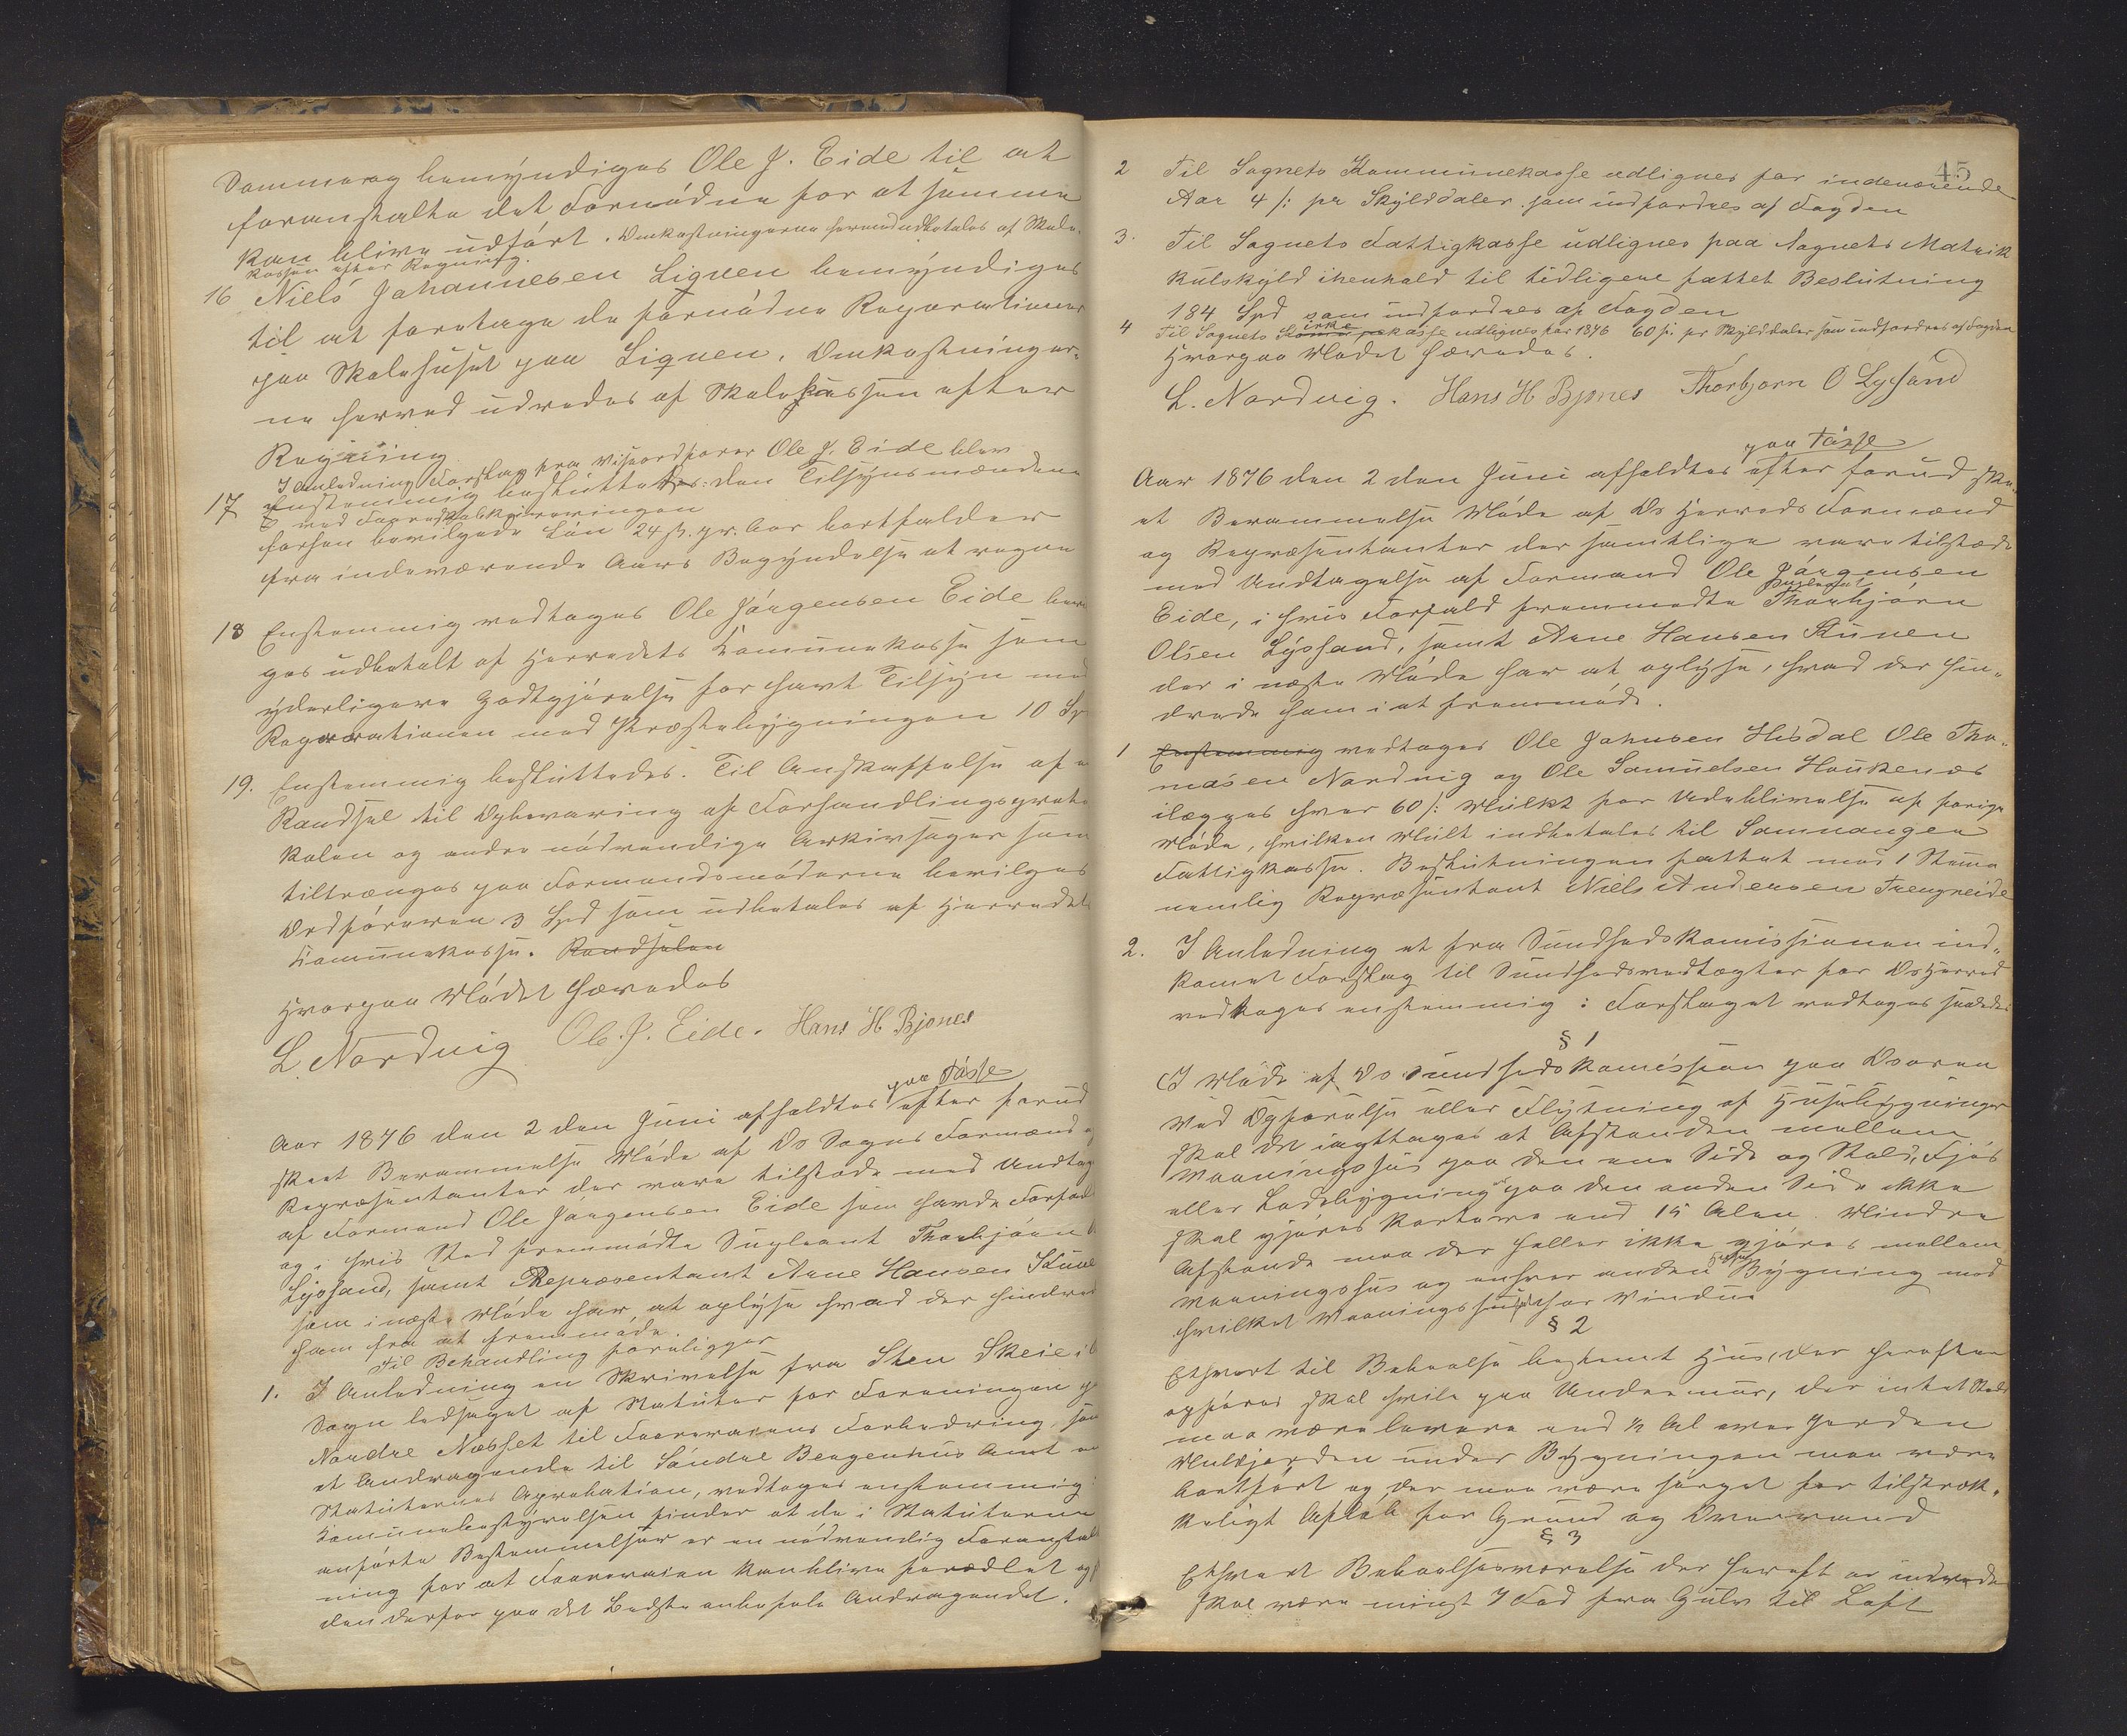 Sommer og bemyndiges Ole J. Eide til at
foranstalte det Fornødne for at samme
kan blive udført. Omkostningerne herved udbetales af Skole-
kassen efter Regning.
16 Niels Johannesen Liqven bemyndiges
til at foretage de fornødne Reparationer
paa Skolehuset paa Liqven. Omkostninger-
ne herved udredes af Skolekassen efter
Regning
I Anledning Forslag fra Viseordfører Ole J. Eide blev
17 Enstemmig besluttedes: den Tilsynsmændene
ved
forhen bevilgede Løn 24 s. pr. Aar bortfalder
fra indeværende Aars Begyndelse at regne
18 Enstemmig vedtages Ole Jørgensen Eide
ges udbetalt af Herredets Komunekasse som
yderligere Godtgjørelse for havt Tilsyn med
Reparationen med Præstebygningen 10 Sp
19. Enstemmig besluttedes. Til Anskaffelse af e
Randsel til Opbevaring af Forhandlingsproto
kolen og andre nødvendige Arkivsager som
tiltrænges paa Formandsmøderne bevilges
Ordføreren 3 Spd som udbetales af Herredets
Komunekasse. Randselen
Hvorpaa Mødet hævedes
L. Nordvig Ole. J. Eide. Hans H Bjønes
paa Tøsse
Aar 1876 den 2 den Juni afholdtes efter forud
skeet Berammelse Møde af Os Sogns Formænd o
Repræsentanter der vare tilstede med Undtag
af Formand Ole Jørgensen Eide som havde Forfald
og i hvis Sted fremmødte Supleant Thorbjørn O
Lyssand, samt Repræsentant Arne Hansen Kuve
som i næste Møde har at oplyse hvad der hindred
ham fra at fremmøde.
Til Behandling foreligger
1. I Anledning en Skrivelse fra Sten Skeie i
Sogn ledsaget af Statuter for Foreningen p
Nordre Næsset til Faarerasens Forbedring, sam
et Andragende til Søndre Bergenhus Amt om
Statuternes Aprobation, vedtages enstemmig:
Komunebestyrelsen finder at de i Statuterne
anførte Bestemmelser er en nødvendig Foranstalt
ning for at Faareraseen kan blive forædlet og
den derfor paa det Bedste anbefale Andragendet.
45
2 Til Sognets Kommunekasse udlignes for indeværende
Aar 4 s: pr Skylddaler som indfordres af Fogden
3. Til Sognets Fattigkasse udlignes paa Sognets Matrik
kulskyld ihenhold til tidligere fattet Beslutning
184 Spd som indfordres af Fogden
4 Til Sognets Kirkekasse udlignes for 1876 60 s: pr Skylddaler som indfordres af Fogden
Hvorpaa Mødet hævedes.
L. Nordvig. Hans H Bjønes Thorbjørn O Lysand
paa Tøsse
Aar 1876 den 2 den Juni afholdtes efter forud ske-
et Berammelse Møde af Os Herreds Formænd
og Repræsentanter der samtlige vare tilstede
med Undtagelse af Formand Ole Jørgensen
Eide, i hvis Forfald fremmødte Supleant Thorbjørn
Olsen Lyssand, samt Arne Hansen Kuven
der i næste Møde har at oplyse, hvad der hin-
drede ham i at fremmøde.
1 Enstemmig vedtages Ole Johnsen Hisdal Ole Tho-
masen Nordvig og Ole Samuelsen Haukenæs
ilægges hver 60 s: Mulkt for Udeblivelse af forige
Møde, hvilken Mult indbetales til Samnanger
Fattigkasse. Beslutningen fattet mod 1 Stemme
nemlig Repræsentant Niels Andersen Trengreide
2. I Anledning et fra Sundhedskomissionen ind-
komet Forslag til Sundhedsvedtægter for Os Herred
vedtages enstemmig: Forslaget vedtages saaledes
§ 1
I Møde af Os Sundhedskomission paa Osøren
Ved Opførelse eller Flytning af Husebygninger
skal det iagttages at Afstanden mellem
Vaaningshus paa den ene Side og Stald, Fjøs
eller Ladebygning paa den anden Side ikke
skal gjøres kortere end 15 Alen. Mindre
Afstande maa der heller ikke gjøres mellem
Vaaningshus og enhver anden Bygning mod
hvilket Vaaningshuset har Vindue
§ 2
Ethvert til Beboelse bestemt Hus, der herefter
opføres skal hvile paa Undermur, der intet Sted
maa være lavere end ½ Al over Jorden
Muldjorden under Bygningen maa være
bortført og der maa være sørget for tilstræk-
keligt Afløb for Grund og Overvand
§ 3
Ethvert Beboelsesværelse der herefter indrede
skal være mingst 4 Fod fra Gulv til Loft